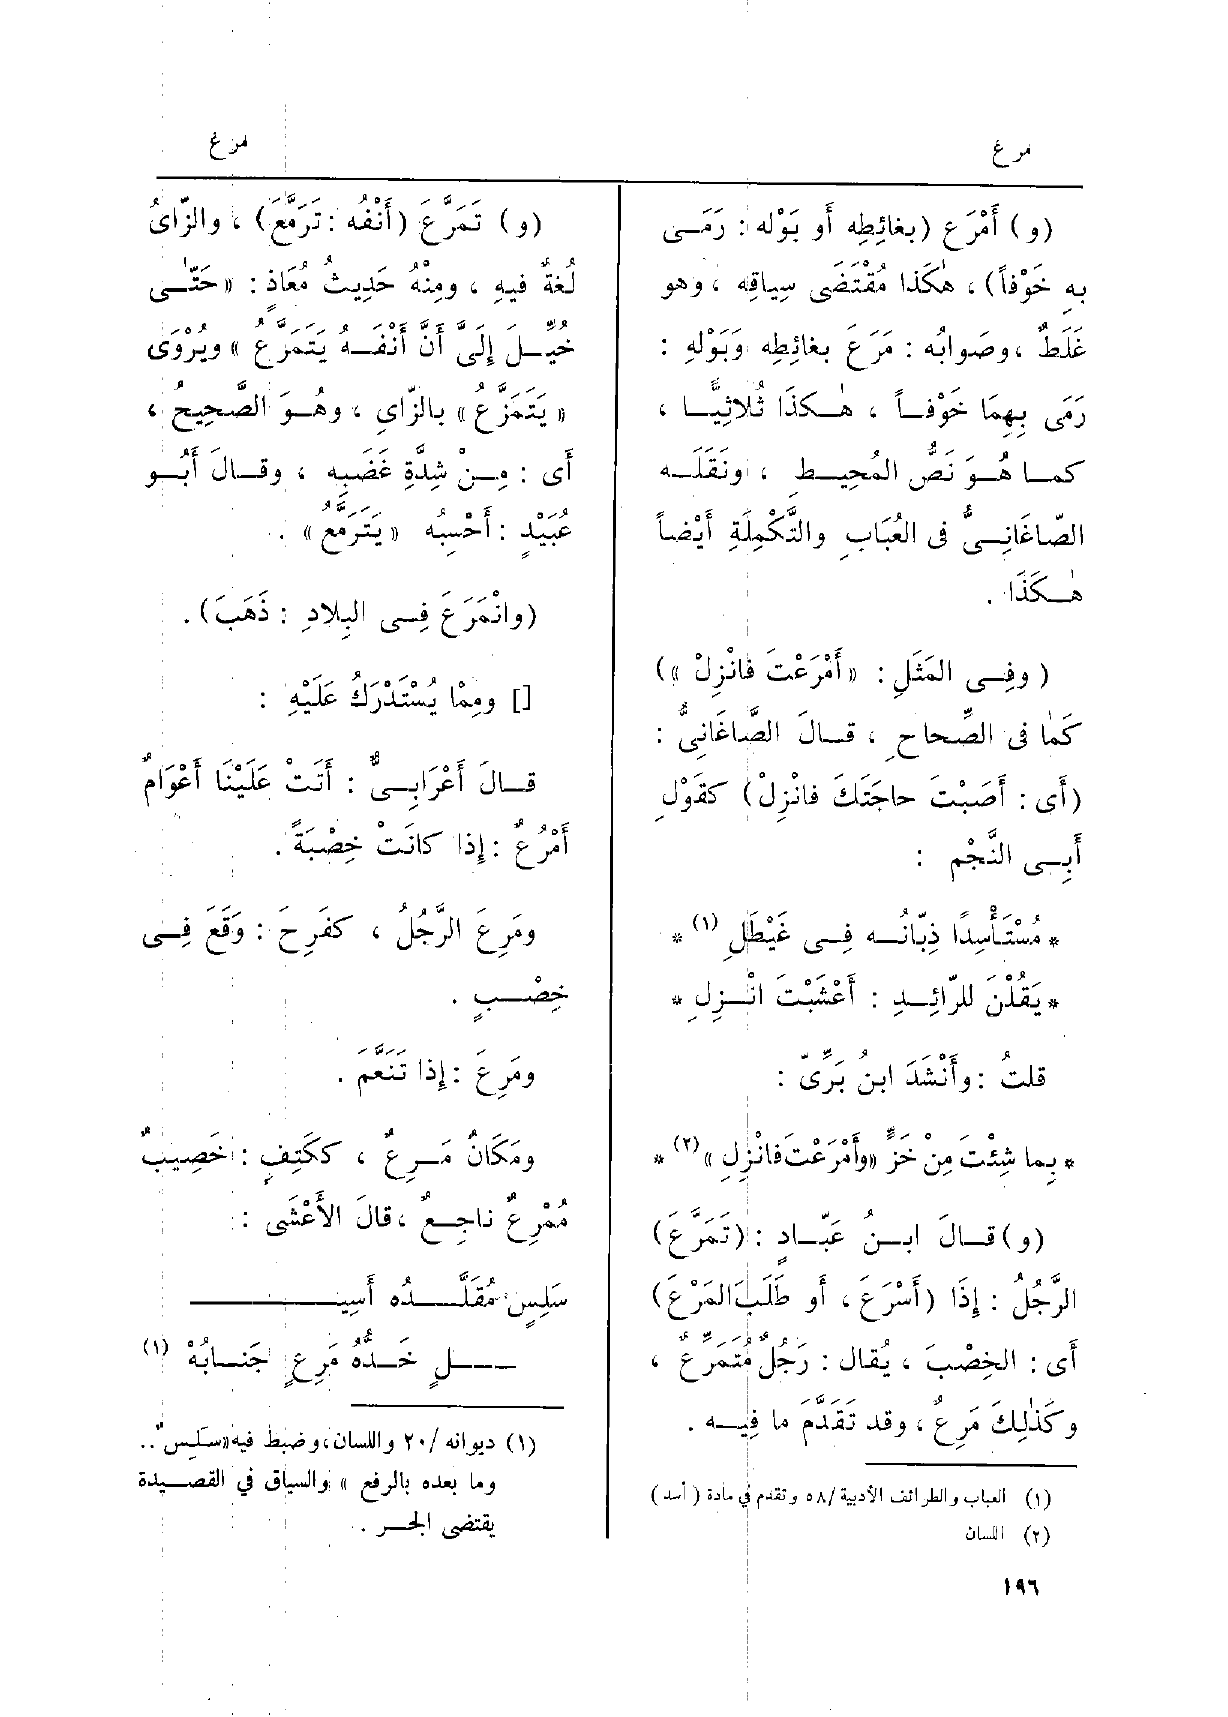 مرع
مرع
(و) أَمْرَع (بغائِطِه أو بَوْله : رَمَـى
بِه خَوْفاً) ، هٰكَذا مُقْتَضَى سِياقِه ، وهو
غَلَطٌ ، وصَوابُه : مَرَعَ بغائِطِه وَبَوْلِهِ :
رَمَى بِهِمَا خَوْفـاً ، هٰـكَذَا ثُلاثِيًّـا ،
كمـا هُـوَ نَصُّ المُحِيـطِ ، ونَقَلَـه
الصّاغَانِـىُّ فى العُبَابِ والتَّكْمِلَةِ أَيْضاً
هٰـكَذَا .
( وفِـى المَثَلِ : «أَمْرَعْتَ فَانْزِلْ »)
كَمٰا فى الصِّحاحِ ، قـالَ الصَّاغَانِىُّ :
(أَى : أَصَبْتَ حاجَتَكَ فانْزِلْ) كقَوْلِ
أَبِـى النَّجْمِ :
* مُسْتَأْسِدًا ذِبّانُـه فِـى غَيْطَلِ (١) *
* يَقُلْنَ للرّائِـدِ : أَعْشَبْتَ انْـزِلِ *
قلتُ : وأَنْشَدَ ابنُ بَرِّىّ :
* بِما شِئْتَ مِنْ خَزٍّ «وأَمْرَعْتَ فانْزِلِ » (٢) *
(و) قـالَ ابـنُ عَبّـادٍ : (تَمَرَّعَ)
الرَّجُلُ : إِذَا (أَسْرَعَ ، أو طَلَبَ المَرْعَ)
أَى : الخِصْبَ ، يُقال : رَجُلٌ مُتَمَرِّعٌ ،
وكَذٰلِكَ مَرِعٌ ، وقد تَقَدَّمَ ما فِيـه .
(١) العباب والطرائف الأدبية /٥٨ وتقدم في مادة (أسد)
(٢) اللسان
(و) تَمَرَّعَ (أَنْفُه : تَرَمَّعَ) ، والزّاىُ
لُغةٌ فيهِ ، ومِنْهُ حَدِيثُ مُعَاذٍ : «حَتّٰـى
خُيِّـلَ إِلَىَّ أَنَّ أَنْفَـهُ يَتَمَرَّعُ » ويُرْوَى
« يَتَمَزَّعُ » بالزّاىِ ، وهُـوَ الصَّحِيحُ ،
أَى : مِـنْ شِدَّةِ غَضَبِه ، وقـالَ أَبُـو
عُبَيْدٍ : أَحْسِبُه «يَتَرَمَّعُ» .
(وانْمَرَعَ فِـى البِلادِ : ذَهَبَ) .
[] ومِمّا يُسْتَدْرَكُ عَلَيْهِ :
قـالَ أَعْرَابِـىٌّ : أَتَتْ عَلَيْنَا أَعْوَامٌ
أَمْرُعٌ : إِذا كانَتْ خِصْبَةً .
ومَرِعَ الرَّجُلُ ، كفَرِحَ : وَقَعَ فِـى
خِصْـبٍ .
ومَرِعَ : إِذا تَنَعَّمَ .
ومَكَانٌ مَـرِعٌ ، ككَتِفٍ : خَصِيبٌ
مُمْرِعٌ ناجِـعٌ ، قالَ الأَعْشَى :
سَلِسٍ مُقَلَّـدُه أَسِيـ
ـلٍ خَـدُّهُ مَرِعٍ جَنـابُهْ (١)
(١) ديوانه /٢٠ واللسان، وضبط فيه «سَلِسٌ ..
وما بعده بالرفع » والسياق في القصيدة
يقتضى الجـر .
١٩٦